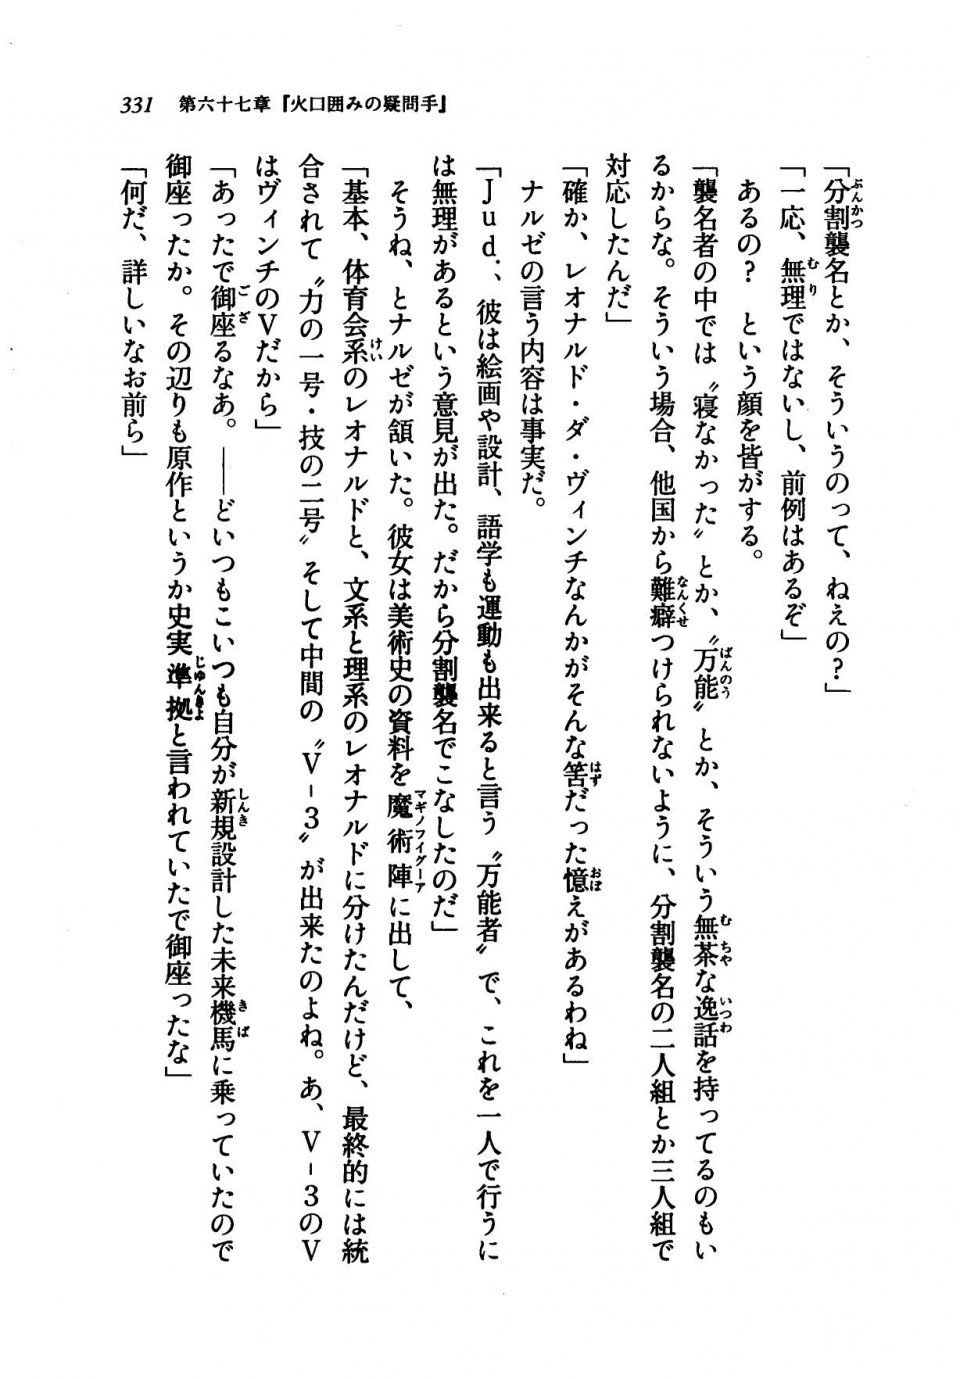 331　第六十七章『火口囲みの疑問手』
「分割襲名とか、そういうのって、ねえの？」
「一応、無理ではないし、前例はあるぞ」
　あるの？　という顔を皆がする。
「襲名者の中では〝寝なかった〟とか、〝万能〟とか、そういう無茶な逸話を持ってるのもい
るからな。そういう場合、他国から難癖つけられないように、分割襲名の二人組とか三人組で
対応したんだ」
「確か、レオナルド・ダ・ヴィンチなんかがそんな筈だった憶えがあるわね」
　ナルゼの言う内容は事実だ。
「Ｊｕｄ．、彼は絵画や設計、語学も運動も出来ると言う〝万能者〟で、これを一人で行うに
は無理があるという意見が出た。だから分割襲名でこなしたのだ」
　そうね、とナルゼが頷いた。彼女は美術史の資料を魔術陣に出して、
「基本、体育会系のレオナルドと、文系と理系のレオナルドに分けたんだけど、最終的には統
合されて〝力の一号・技の二号〟そして中間の〝Ｖ－３〟が出来たのよね。あ、Ｖ－３のＶ
はヴィンチのＶだから」
「あったで御座るなあ。――どいつもこいつも自分が新規設計した未来機馬に乗っていたので
御座ったか。その辺りも原作というか史実準拠と言われていたで御座ったな」
「何だ、詳しいなお前ら」